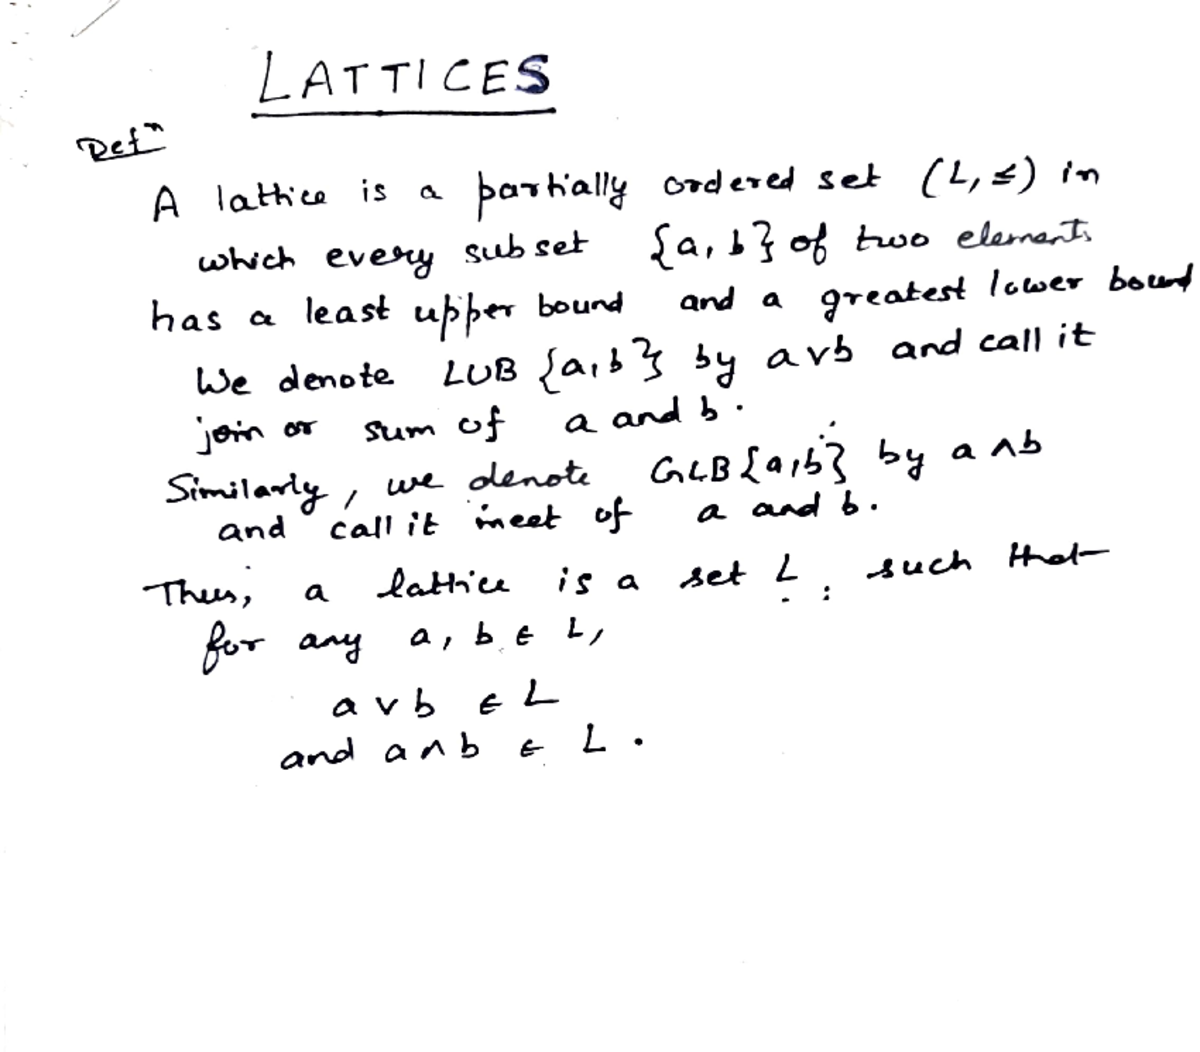 LATTICES
Defⁿ
A lattice is a partially ordered set (L, ≤) in
which every subset {a, b} of two elements
has a least upper bound and a greatest lower bound
We denote LUB {a, b} by a ∨ b and call it
join or sum of a and b.
Similarly, we denote GLB {a, b} by a ∧ b
and call it meet of a and b.
Thus, a lattice is a set L such that
for any a, b ∈ L,
a ∨ b ∈ L
and a ∧ b ∈ L.